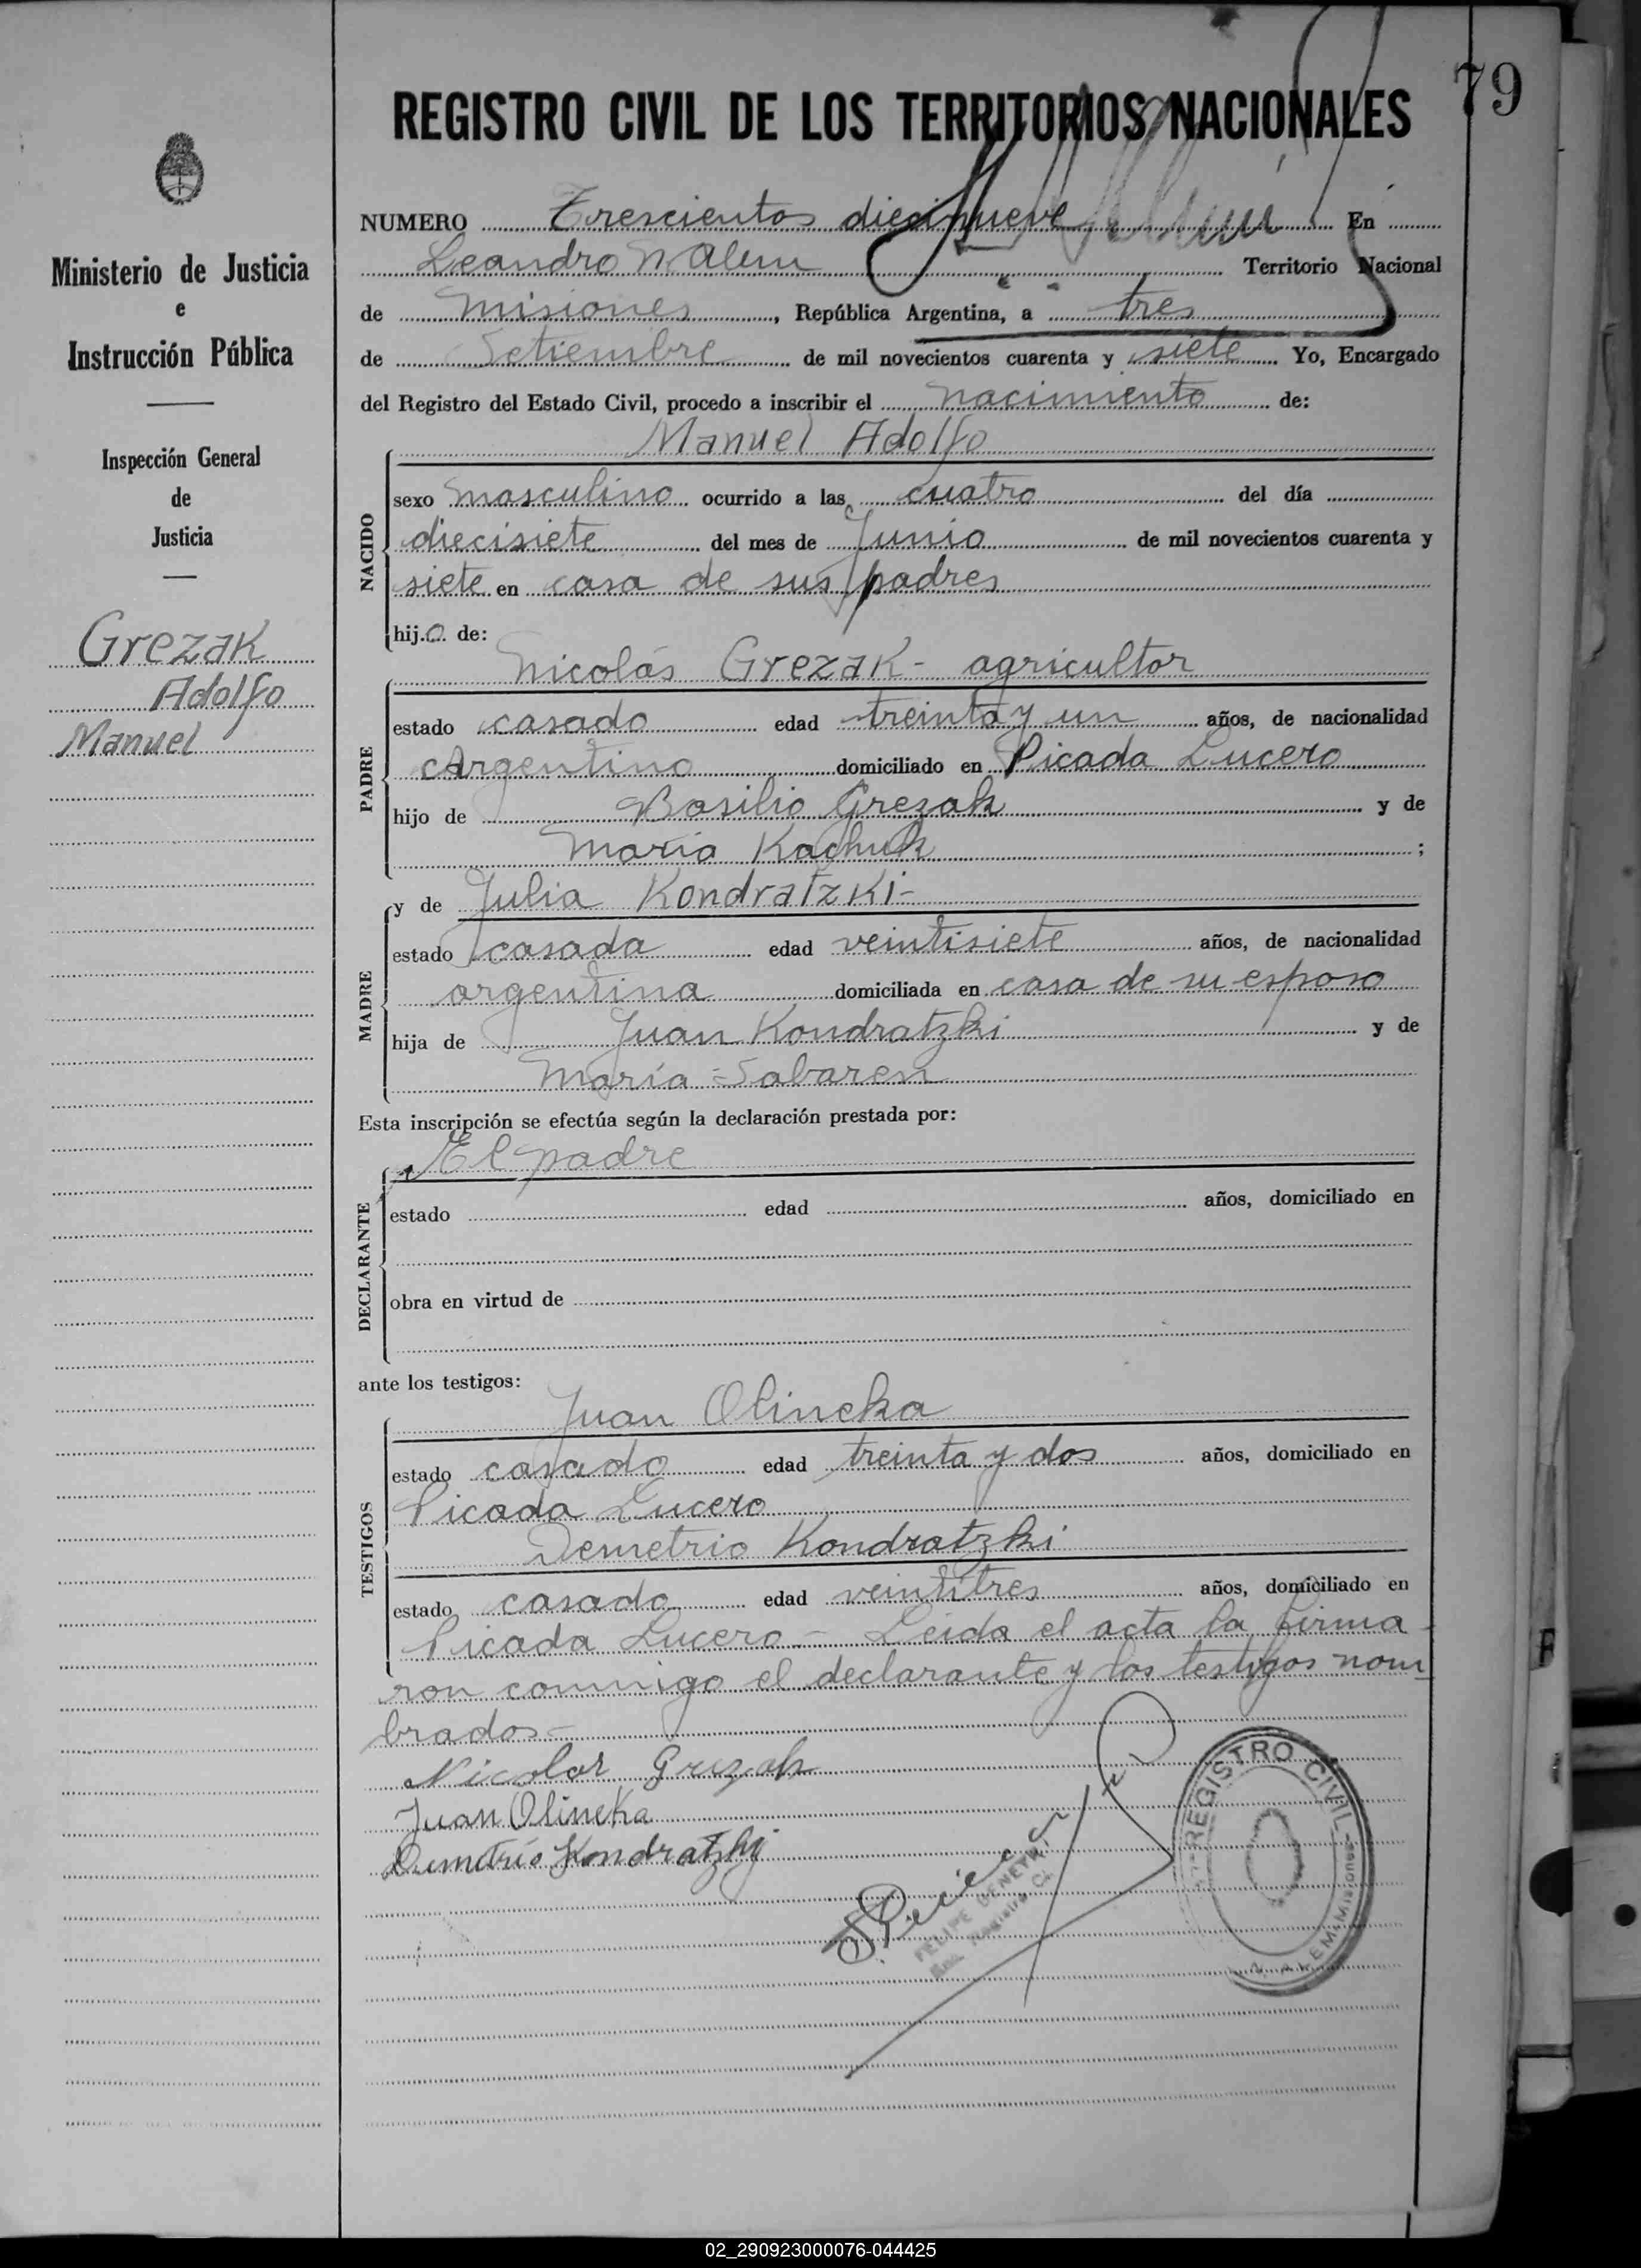 79
REGISTRO CIVIL DE LOS TERRITORIOS NACIONALES
Ministerio de Justicia
e
Instrucción Pública
Inspección General
de
Justicia
Grezak
Adolfo
Manuel
NUMERO Trescientos diecinueve En
Leandro N. Alem Territorio Nacional
de Misiones, República Argentina, a tres
de Setiembre de mil novecientos cuarenta y siete Yo, Encargado
del Registro del Estado Civil, procedo a inscribir el nacimiento de:
Manuel Adolfo
NACIDO
sexo masculino ocurrido a las cuatro del día
diecisiete del mes de Junio de mil novecientos cuarenta y
siete en casa de sus padres
hijo de:
Nicolás Grezak - agricultor
PADRE
estado casado edad treinta y un años, de nacionalidad
Argentino domiciliado en Picada Lucero
hijo de Basilio Grezak y de
María Kachuk ;
y de Julia Kondratzki-
MADRE
estado casada edad veintisiete años, de nacionalidad
argentina domiciliada en casa de su esposo
hija de Juan Kondratzki y de
María Sabaren
Esta inscripción se efectúa según la declaración prestada por:
El padre
DECLARANTE
estado edad años, domiciliado en
obra en virtud de
ante los testigos:
Juan Olineka
TESTIGOS
estado casado edad treinta y dos años, domiciliado en
Picada Lucero
Demetrio Kondratzki
estado casado edad veintitres años, domiciliado en
Picada Lucero - Leida el acta la firma-
ron conmigo el declarante y los testigos nom
brados-
Nicolas Grezak
Juan Olineka
Demetrio Kondratzki
FELIPE
REGISTRO CIVIL
N. ALEM-Misiones
02_290923000076-044425